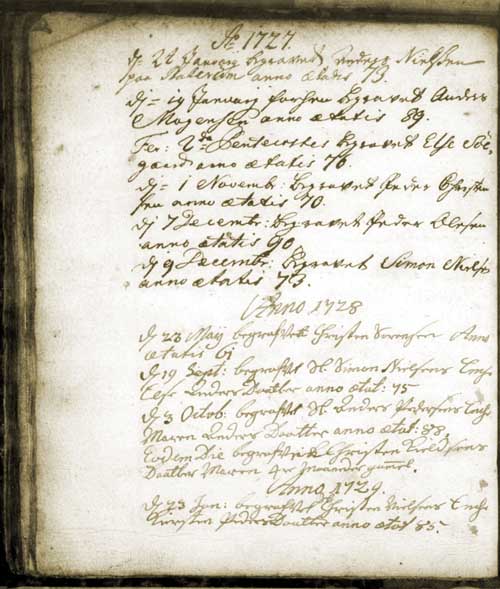 Ao 1727.
dj 22 Januarij begravet Anders Nielsen
paa anno ætatis 73.
dj = 19 Januarij begravet Anders
Mogensen anno ætatis 89.
Fer: 2da Pentecostes begravet Else Sø-
gaard anno ætatis 76.
dj = 1 Novembr: begravet Peder Christen
sen anno ætatis 70.
dj 7 Decembr: begravet Peder Olesen
anno ætatis 90.
dj 9 Decembr: begravet Simon Niels
anno ætatis 73.
Anno 1728
dj 23 Maij begravet Christen Sørensen Anno
ætatis 61
dj 19 Sept: begravet Sl. Simon Nielsens Enche
Else Anders Daatter anno ætat: 75
dj 3 Octob: begravet Sl. Anders Pedersens Enche
Maren Anders Daatter anno ætat: 88
Eodem Die begravet Christen Kieldsens
Daatter Maren, 4re gammel.
Anno 1729
dj 23 Jan: begravet Christen Nielsens Enche
Kiersten Peders Daatter anno ætat 85.